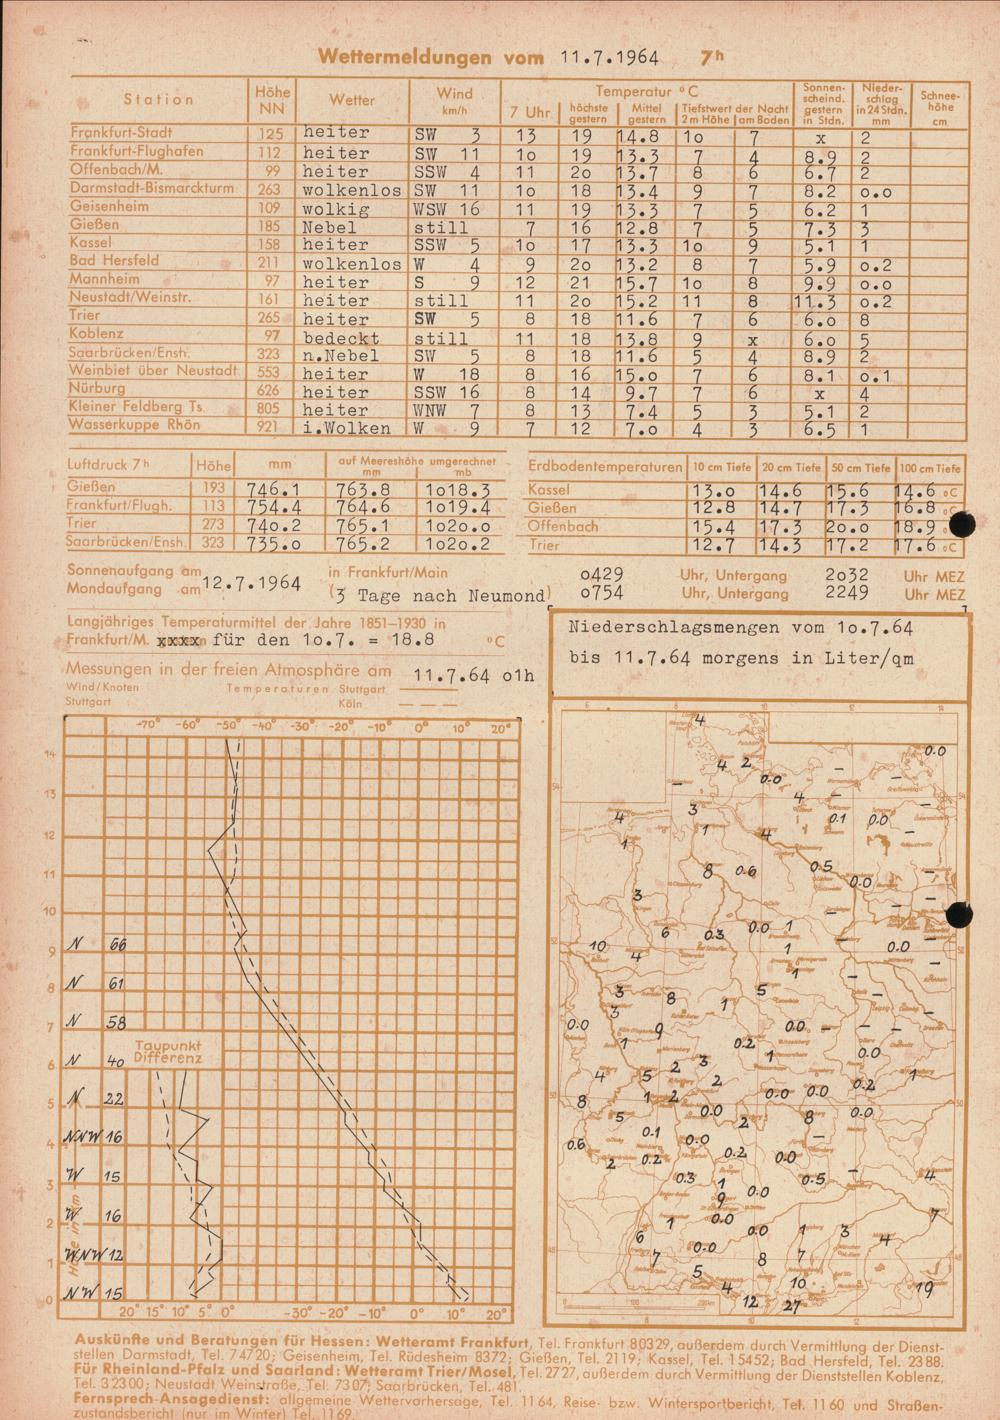 Wettermeldungen vom 11.7.1964 7ʰ
Station Höhe NN Wetter Wind km/h Temperatur °C Sonnenscheind. gestern in Stdn. Niederschlag in 24 Stdn. mm Schneehöhe cm
7 Uhr höchste gestern Mittel gestern Tiefstwert der Nacht 2 m Höhe am Boden
Frankfurt-Stadt 125 heiter SW 3 13 19 14.8 1o 7 x 2
Frankfurt-Flughafen 112 heiter SW 11 1o 19 13.3 7 4 8.9 2
Offenbach/M. 99 heiter SSW 4 11 2o 13.7 8 6 6.7 2
Darmstadt-Bismarckturm 263 wolkenlos SW 11 1o 18 13.4 9 7 8.2 o.o
Geisenheim 109 wolkig WSW 16 11 19 13.3 7 5 6.2 1
Gießen 185 Nebel still 7 16 12.8 7 5 7.3 3
Kassel 158 heiter SSW 5 1o 17 13.3 1o 9 5.1 1
Bad Hersfeld 211 wolkenlos W 4 9 2o 13.2 8 7 5.9 o.2
Mannheim 97 heiter S 9 12 21 15.7 1o 8 9.9 o.o
Neustadt/Weinstr. 161 heiter still 11 2o 15.2 11 8 11.3 o.2
Trier 265 heiter SW 5 8 18 11.6 7 6 6.o 8
Koblenz 97 bedeckt still 11 18 13.8 9 x 6.o 5
Saarbrücken/Ensh. 323 n.Nebel SW 5 8 18 11.6 5 4 8.9 2
Weinbiet über Neustadt 553 heiter W 18 8 16 15.o 7 6 8.1 o.1
Nürburg 626 heiter SSW 16 8 14 9.7 7 6 x 4
Kleiner Feldberg Ts. 805 heiter WNW 7 8 13 7.4 5 3 5.1 2
Wasserkuppe Rhön 921 i.Wolken W 9 7 12 7.o 4 3 6.5 1
Luftdruck 7ʰ Höhe mm auf Meereshöhe umgerechnet mm mb
Gießen 193 746.1 763.8 1o18.3
Frankfurt/Flugh. 113 754.4 764.6 1o19.4
Trier 273 74o.2 765.1 1o2o.o
Saarbrücken/Ensh. 323 735.o 765.2 1o2o.2
Erdbodentemperaturen 10 cm Tiefe 20 cm Tiefe 50 cm Tiefe 100 cm Tiefe
Kassel 13.o 14.6 15.6 14.6 °C
Gießen 12.8 14.7 17.3 16.8 °C
Offenbach 15.4 17.3 2o.o 18.9 °C
Trier 12.7 14.3 17.2 17.6 °C
Sonnenaufgang am in Frankfurt/Main o429 Uhr, Untergang 2o32 Uhr MEZ
Mondaufgang am 12.7.1964 (3 Tage nach Neumond) o754 Uhr, Untergang 2249 Uhr MEZ
Langjähriges Temperaturmittel der Jahre 1851–1930 in
Frankfurt/M. xxxx für den 1o.7. = 18.8 °C
Messungen in der freien Atmosphäre am 11.7.64 o1h
Wind/Knoten Temperaturen Stuttgart
Stuttgart Köln
Niederschlagsmengen vom 1o.7.64
bis 11.7.64 morgens in Liter/qm
-70° -60° -50° -40° -30° -20° -10° 0° 10° 20°
14
13
12
11
10
N 66
9
N 61
8
N 58
7
Taupunkt
Differenz
N 40
6
N 22
5
NNW 16
4
W 15
3
W 16
2
WNW 12
1
NW 15
0
Höhe in km
20° 15° 10° 5° 0° -30° -20° -10° 0° 10° 20°
4
0.0
4 2
0.0
4
3
4
0.1 0.0
1 4
1
8 0.6 0.5
0.0
3
6 0.3 0.0 1
10 4 1 0.0
1
3 8 1 5
3
0.0 9 0.0
1 0.2 1 0.0
2 3
4 5 2 0.2 1
8 1 2 0.0 0.0
5 0.0 2 8 0.0
0.6 0.1 0.0
2 0.2 0.2 0.0
0.3 1 0.0 0.5 4
9
1 0.0 7
6 0.0 1 3 4
7 0.0 8 7
5 4 10 19
12 27
Auskünfte und Beratungen für Hessen: Wetteramt Frankfurt, Tel. Frankfurt 80329, außerdem durch Vermittlung der Dienst-
stellen Darmstadt, Tel. 74720; Geisenheim, Tel. Rüdesheim 8372; Gießen, Tel. 2119; Kassel, Tel. 15452; Bad Hersfeld, Tel. 2388.
Für Rheinland-Pfalz und Saarland: Wetteramt Trier/Mosel, Tel. 2727, außerdem durch Vermittlung der Dienststellen Koblenz,
Tel. 32300; Neustadt Weinstraße, Tel. 7307; Saarbrücken, Tel. 481.
Fernsprech-Ansagedienst: allgemeine Wettervorhersage, Tel. 1164, Reise- bzw. Wintersportbericht, Tel. 1160 und Straßen-
zustandsbericht (nur im Winter) Tel. 1169.